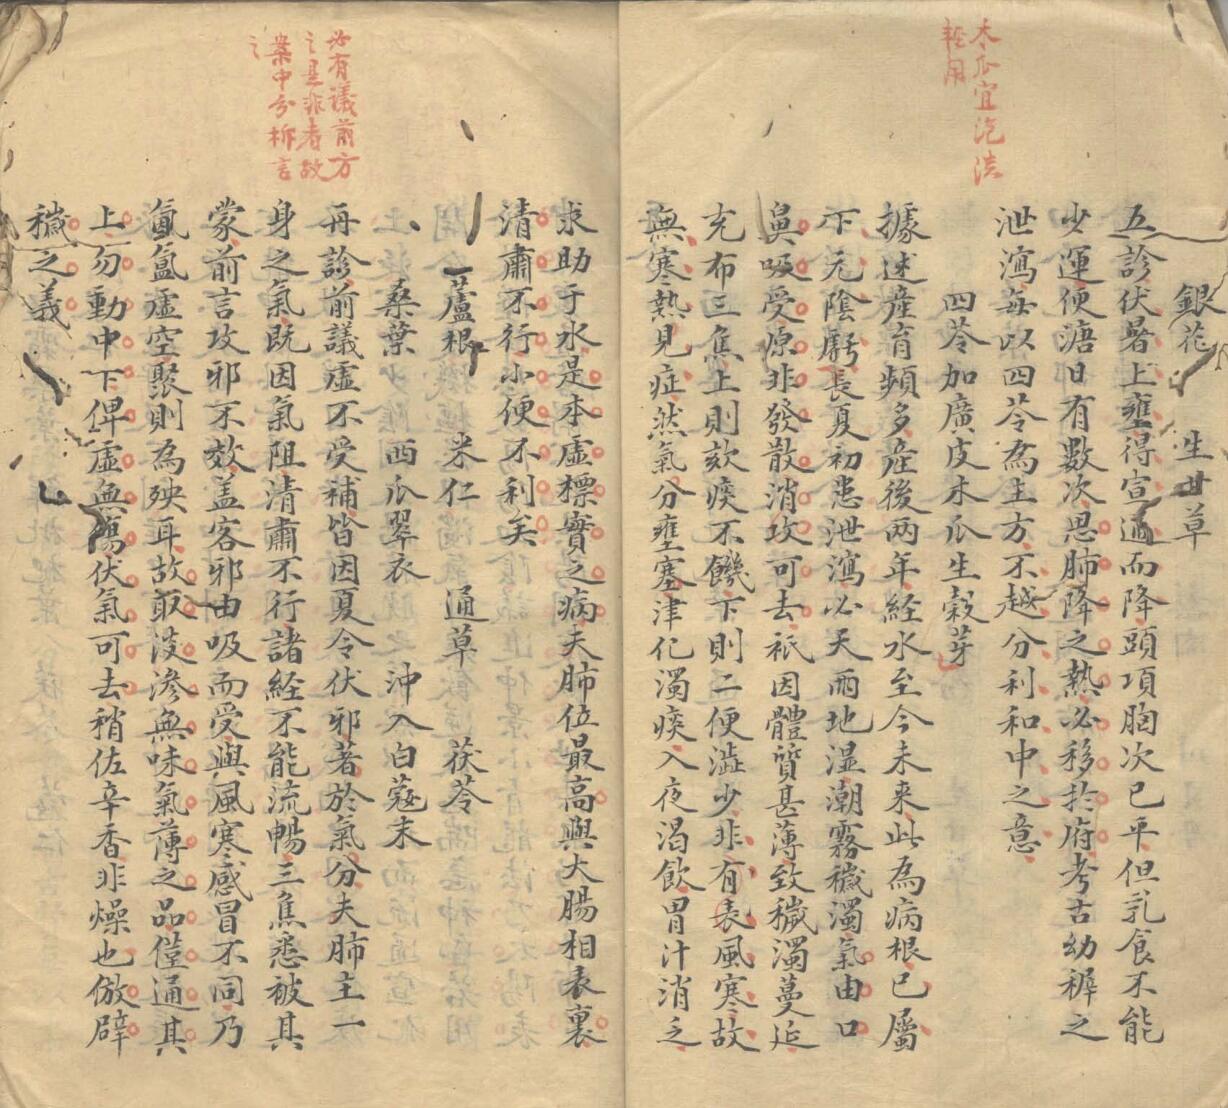 木瓜宜泡淡
輕用
銀花 生甘草
五診伏暑上壅得宣通而降頭項胸次已平但乳食不能
少運便溏日有數次思肺降之熱必移於府考古幼稺之
泄瀉每以四苓為主方不越分利和中之意
四苓加廣皮木瓜生穀芽
據述産育頻多産後兩年経水至今未來此為病根已屬
下元陰虧長夏初患泄瀉必天雨地湿潮霧穢濁氣由口
鼻吸受原非發散消攻可去衹因體質甚薄致穢濁蔓延
充布三焦上則欬痰不饑下則二便澁少非有表風寒故
無寒熱見症然氣分壅塞津化濁痰入夜渴飲胃汁消乏
求助于水是本虛標實之病夫肺位最高與大腸相表裏
清肅不行小便不利矣
蘆根 米仁 通草 茯苓
桑葉 西瓜翠衣 沖入白蔻末
必有議前方
之是非者故
案中分柝言
之
再診前議虛不受補皆因夏令伏邪著於氣分夫肺主一
身之氣既因氣阻清肅不行諸経不能流暢三焦悉被其
蒙前言攻邪不效盖客邪由吸而受與風寒感冒不同乃
氤氲虛空聚則為殃耳故取淡滲無味氣薄之品僅通其
上勿動中下俾虛無傷伏氣可去稍佐辛香非燥也倣辟
穢之義